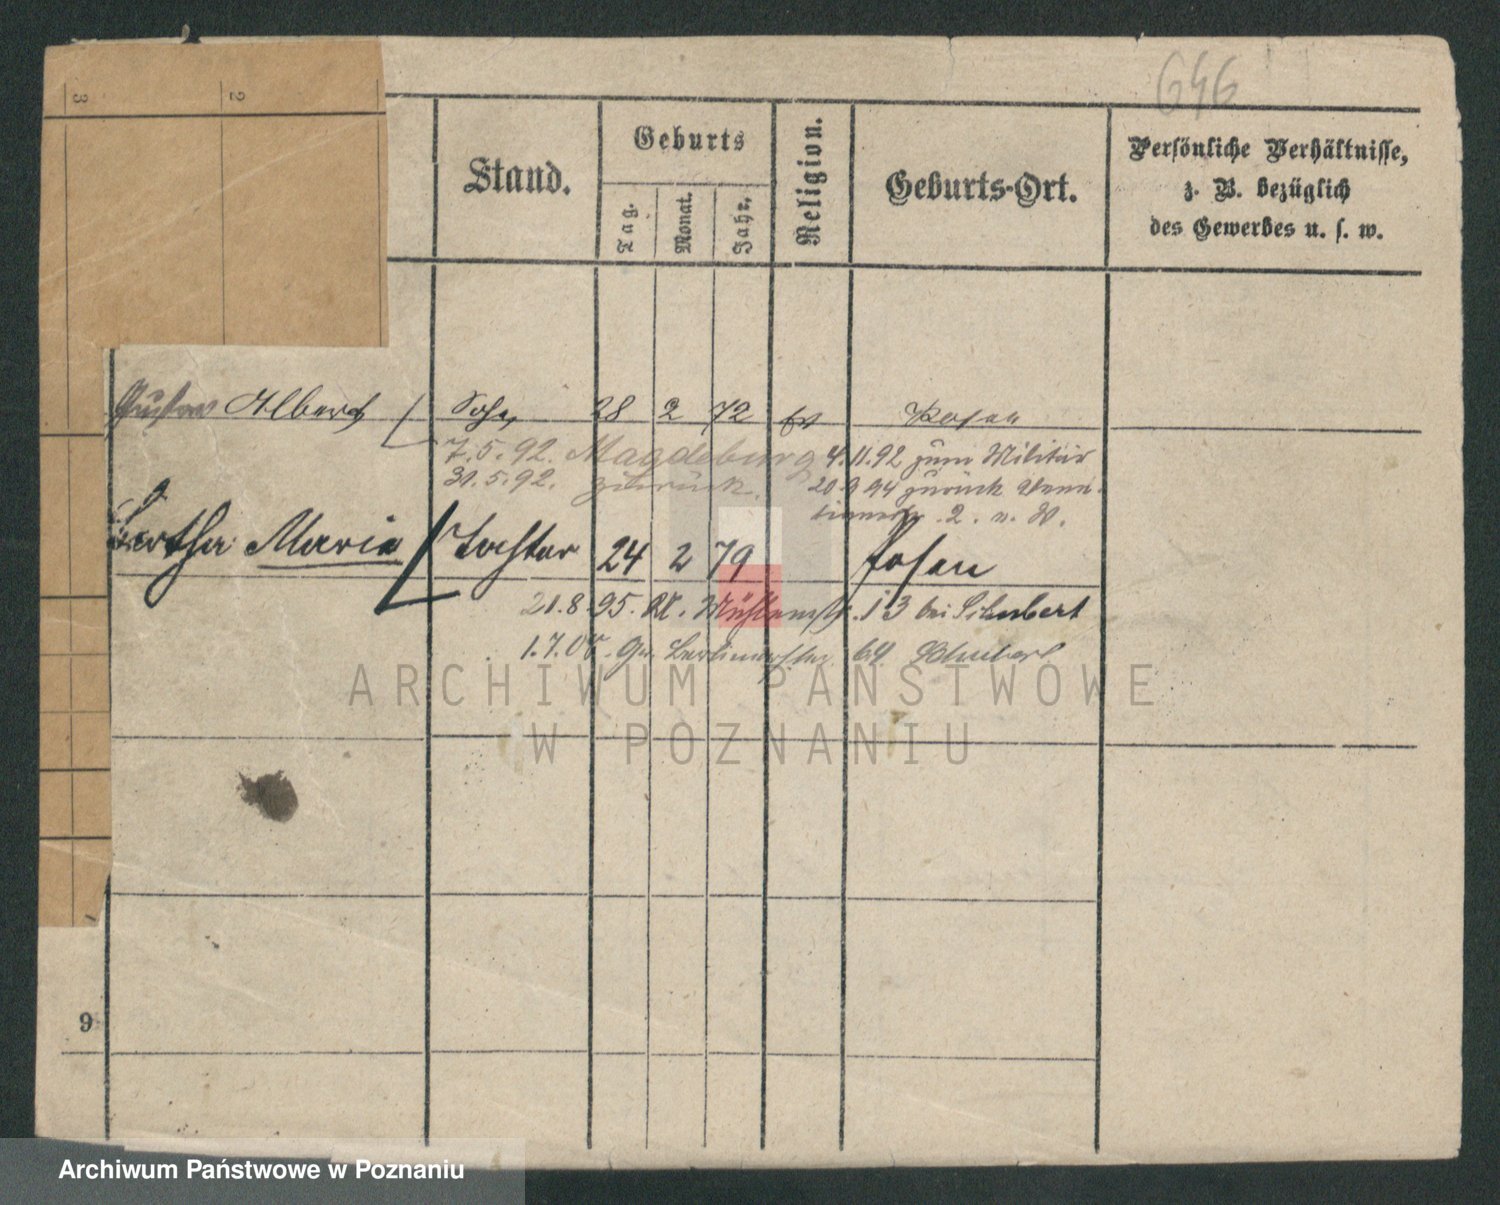 646
3 2
Stand.
Geburts
Tag. Monat. Jahr.
Religion.
Geburts-Ort.
Persönliche Verhältnisse,
z. B. bezüglich
des Gewerbes u. s. w.
Gustav Albert Sohn 28 2 72 Ev Posen
7.5.92. Magdeburg 4.11.92 zum Militär
31.5.92. zurück. 20.9 94 zurück
2. u. W.
Bertha Maria Tochter 24 2 79 Posen
21.8.95. 13 bei Schubert
1.7.00. Gr. Berlinerstr 64 Schubert
ARCHIWUM PAŃSTWOWE
W POZNANIU
9
Archiwum Państwowe w Poznaniu